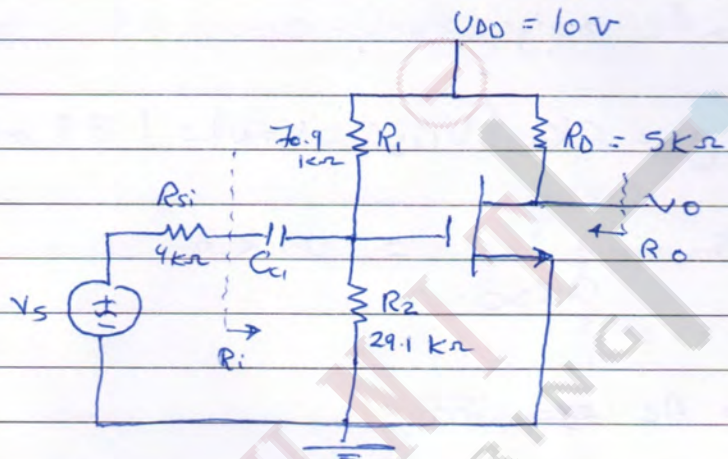 VDD = 10V
70.9 kΩ
R1
RD = 5kΩ
Rsi
4kΩ
CC1
Vo
Ro
Vs
Ri
R2
29.1 kΩ